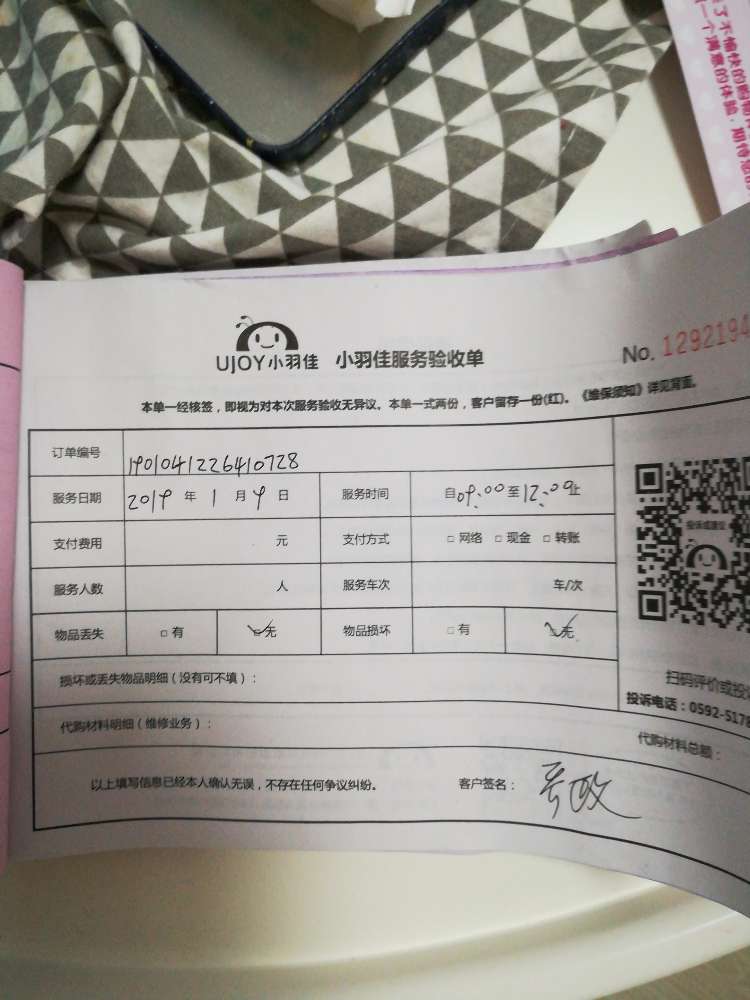 了不愉快的
一个满意的体验，期待您
UJOY小羽佳 小羽佳服务验收单 No. 1292194
本单一经核签，即视为对本次服务验收无异议。本单一式两份，客户留存一份(红)。《维保须知》详见背面。
订单编号 1901041226410728
服务日期 2019 年 1 月 9 日 服务时间 自09:00至12:00止
投诉或建议
支付费用 元 支付方式 □ 网络 □ 现金 □ 转账
服务人数 人 服务车次 车/次
物品丢失 □ 有 ☑ 无 物品损坏 □ 有 ☑ 无
损坏或丢失物品明细（没有可不填）：
扫码评价或投
投诉电话：0592-5178
代购材料明细（维修业务）： 代购材料总额：
以上填写信息已经本人确认无误，不存在任何争议纠纷。 客户签名：